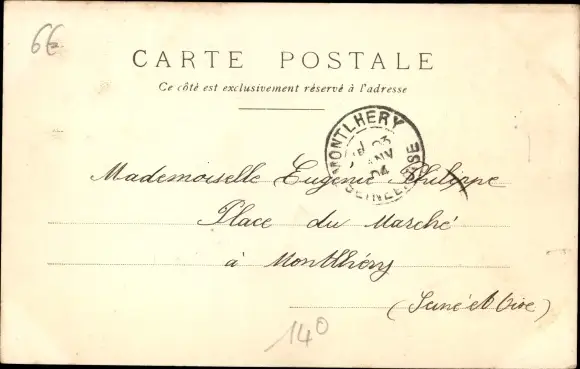 66
CARTE POSTALE
Ce côté est exclusivement réservé à l'adresse
MONTLHERY
23
JANV
04
SEINE-ET-OISE
Mademoiselle Eugenie Philippe
Place du Marché
à Montlhéry
(Seine et Oise)
140